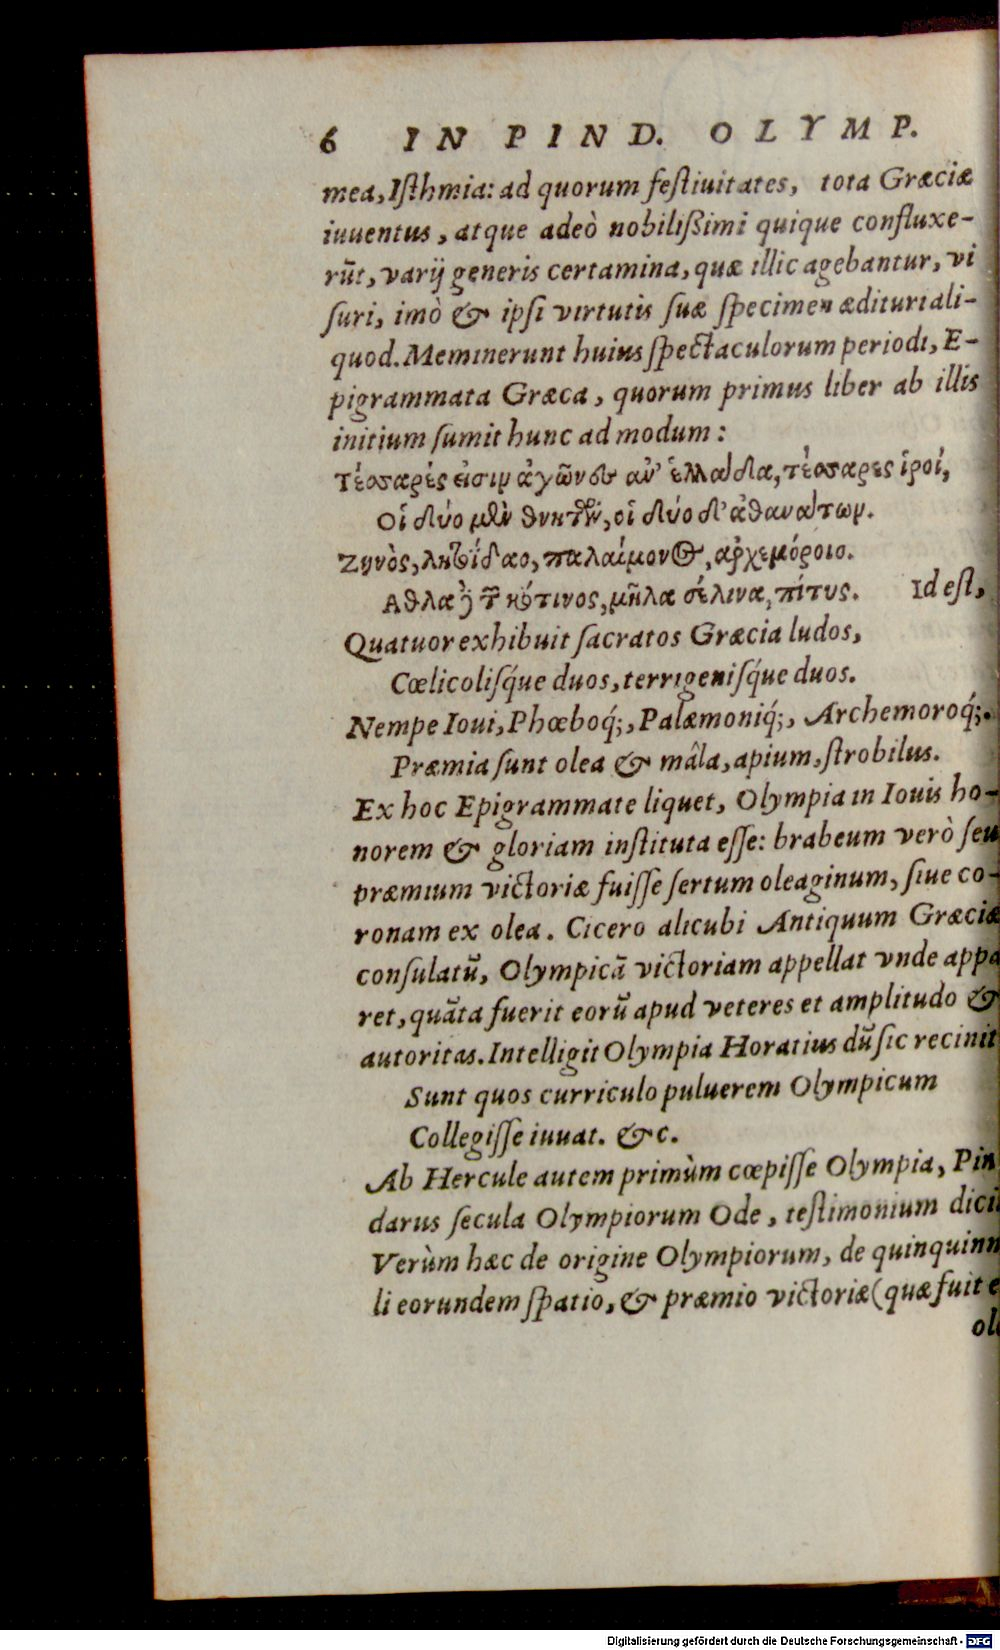 6 IN PIND. OLYMP.
mea, Isthmia: ad quorum festiuitates, tota Græciæ
iuuentus, atque adeò nobilißimi quique confluxe-
rūt, varij generis certamina, quæ illic agebantur, vi
suri, imò & ipsi virtutis suæ specimen ædituri ali-
quod. Meminerunt huius spectaculorum periodi, E-
pigrammata Græca, quorum primus liber ab illis
initium sumit hunc ad modum:
Τέσσαρές εἰσιν ἀγῶνες ἀν' ἑλλάδα, τέσσαρες ἱροί,
Οἱ δύο μὲν θνητῶν, οἱ δύο δ' ἀθανάτων.
Ζηνὸς, λητοΐδαο, παλαίμονος, ἀρχεμόροιο.
Αθλα δὲ τῶν κότινος, μῆλα σέλινα, πίτυς. Id est,
Quatuor exhibuit sacratos Græcia ludos,
Cœlicolisq́ue duos, terrigenisq́ue duos.
Nempe Ioui, Phœboq́;, Palæmoniq́;, Archemoroq́;.
Præmia sunt olea & mâla, apium, strobilus.
Ex hoc Epigrammate liquet, Olympia in Iouis ho-
norem & gloriam instituta esse: brabeum verò seu
præmium victoriæ fuisse sertum oleaginum, siue co-
ronam ex olea. Cicero alicubi Antiquum Græciæ
consulatū, Olympicā victoriam appellat vnde appa
ret, quāta fuerit eorū apud veteres et amplitudo &
autoritas. Intelligit Olympia Horatius dū sic recinit
Sunt quos curriculo puluerem Olympicum
Collegisse iuuat. &c.
Ab Hercule autem primùm cœpisse Olympia, Pin
darus secula Olympiorum Ode, testimonium dici
Verùm hæc de origine Olympiorum, de quinquinn
li eorundem spatio, & præmio victoriæ (quæ fuit e
ole
Digitalisierung gefördert durch die Deutsche Forschungsgemeinschaft - DFG